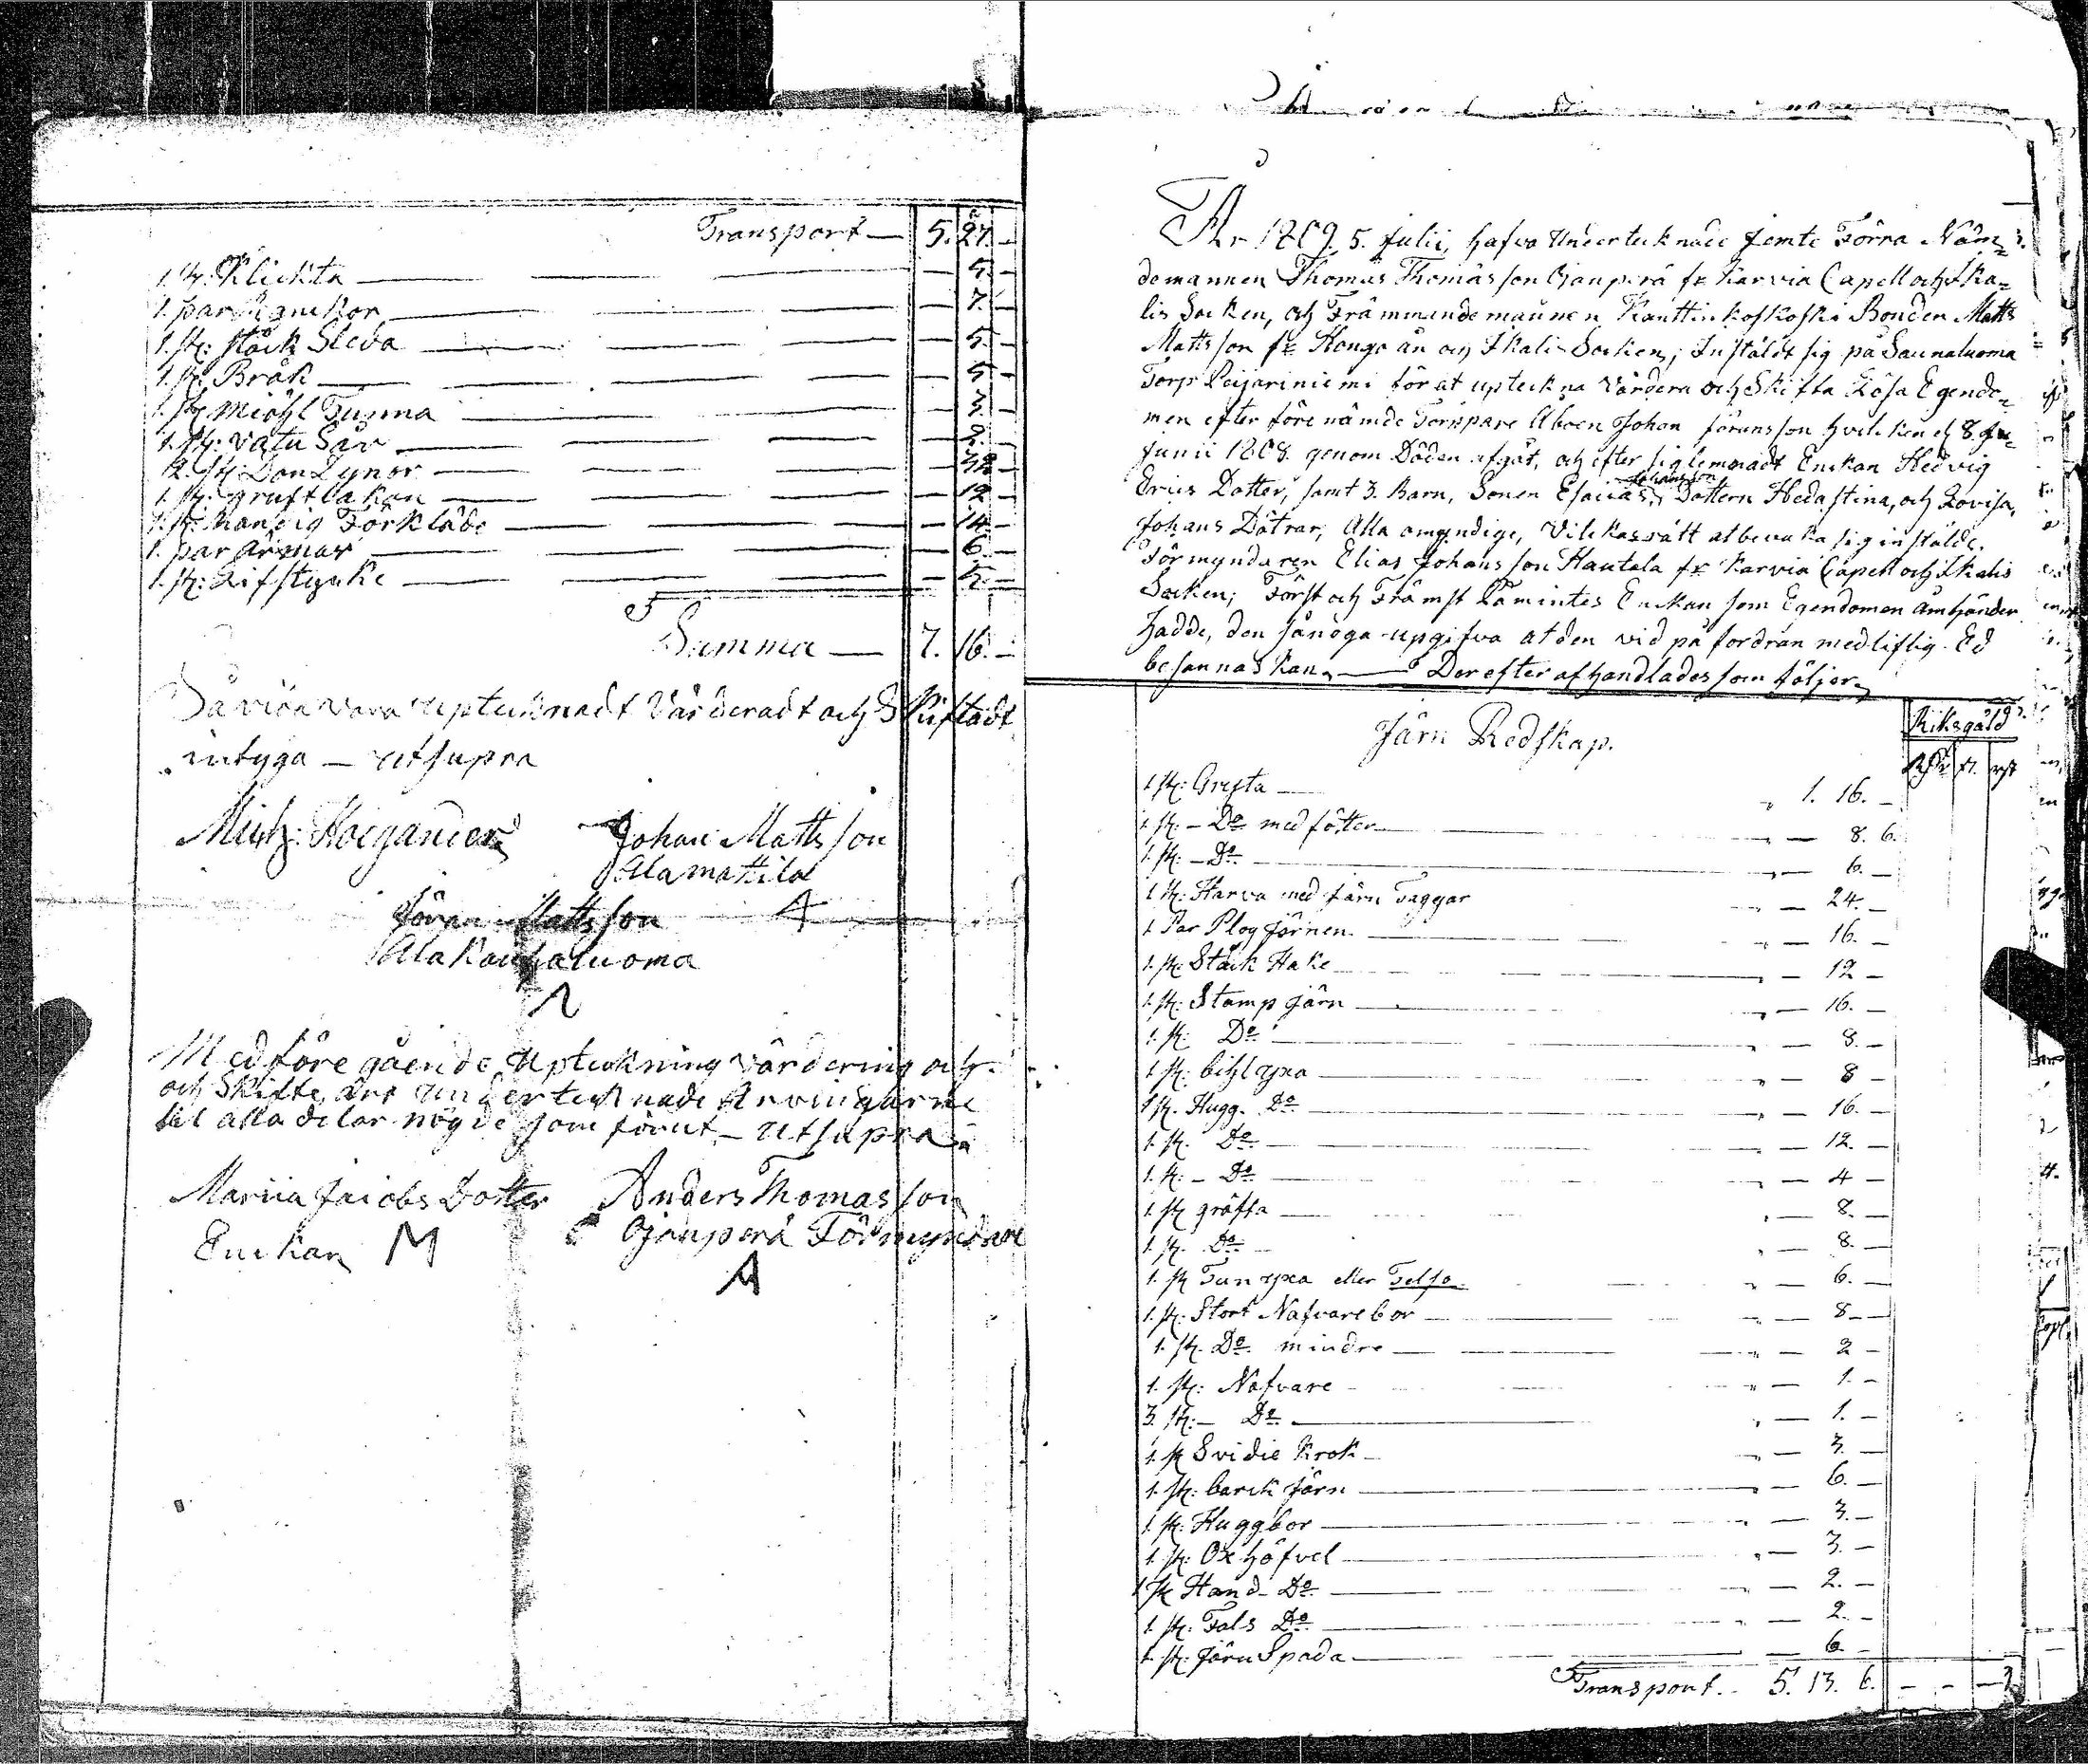 Transport — 5. 27. —
1. st: Klickta — 5. —
1. par — 7. —
1. st: stäck Sleda — 5. —
1. st: Bråk — 5 —
1. st: Miöhl Tunna — 3. —
1. st: vatu Sår — 2. —
2. st — 32 —
1. st: gruftlakan — 12 —
1. st: handig Förkläde — 14 —
1. par ärmar — 6. —
1. st: Lifstycke — 5. —
Summa — 7. 16. —
vara uptecknadt Värderadt och Skiftadt
intyga — utsupra
Mich: Johan Mattsson
Alamattila
Jöran Mattsson
Alakauhaluoma
Med före gående Upteckning värdering och
och Skifte, äre undertecknade Arvingarne
til alla delar nögde som förut — utsupra
Maria Jacobs Dotter Anders Thomasson
Enckan M Ojanperä Förmyndare
A
År 1809. 5. Julii, hafva Undertecknade jemte Förra Näm=
demannen Thomas Thomasson Ojanperä fr Karvia Capell och Ika=
lis Socken, och Främmande mannen Kanttinkoskoski Bonden Matts
Mattsson fr Kongo ån och Ikalis Socken, Instäldt sig på Saunaluoma
Torp Peijariniemi för at upteckna Värdera och Skifta Lösa Egendo=
men efter före nämde Torppare Aboen Johan Jöransson hvilcken d 8. Ju=
Junii 1808. genom Döden afgåt, och efter sig lemnadt Enckan Hedvig
Erics Dotter, samt 3. Barn, Sonen Esaias Johansson, Dottern Hedastina, och Lovisa,
Johans Dötrar, Alla omyndige, Vilckas rätt at bevaka sig instälde,
Förmyndaren Elias Johansson Hautala fr Karvia Capell och Ikalis
Socken; Först och Främst Påmintes Enckan som Egendomen om händer
hadde, den sånöga upgifva at den vid på fordran med liflig Ed
besannas kan. — Der efter afhandlades som följer,
Järn Redskap.
Riksgäld
1 st: Grefta — „ 1. 16. —
1 st: — Do med fötter — „ — 8. 6.
1. st: — Do — „ — 6. —
1 st: Harva med järn Taggar „ — 24. —
1 Par Plog Jörnen — „ — 16. —
1. st: Stäck Hake — „ — 12 —
1. st: Stamp järn — „ — 16. —
1. st: Do — „ — 8. —
1. st: bihl yxa — „ — 8 —
1 st. Hugg. Do — „ — 16. —
1. st. Do — „ — 12. —
1. st: — Do — „ — 4 —
1. st gräfta — „ — 8. —
1. st. Do — „ — 8. —
1. st Tun yxa eller Telso „ — 6. —
1. st: Stort Nafvare bor — „ — 8 —
1. st. Do mindre — „ — 2 —
1. st: Nafvare — „ — 1. —
3. st: — Do — „ — 1. —
1. st Svidie Krok — „ — 3. —
1. st: barck Jörn — „ — 6. —
1. st: Huggbor — „ — 3. —
1. st: Ox höfvel — „ — 3. —
1 st Hand Do — „ — 2. —
1. st: Fals Do — „ — 2. —
1 st: Järn Spada — „ — 6 —
Transport. 5. 13. 6.